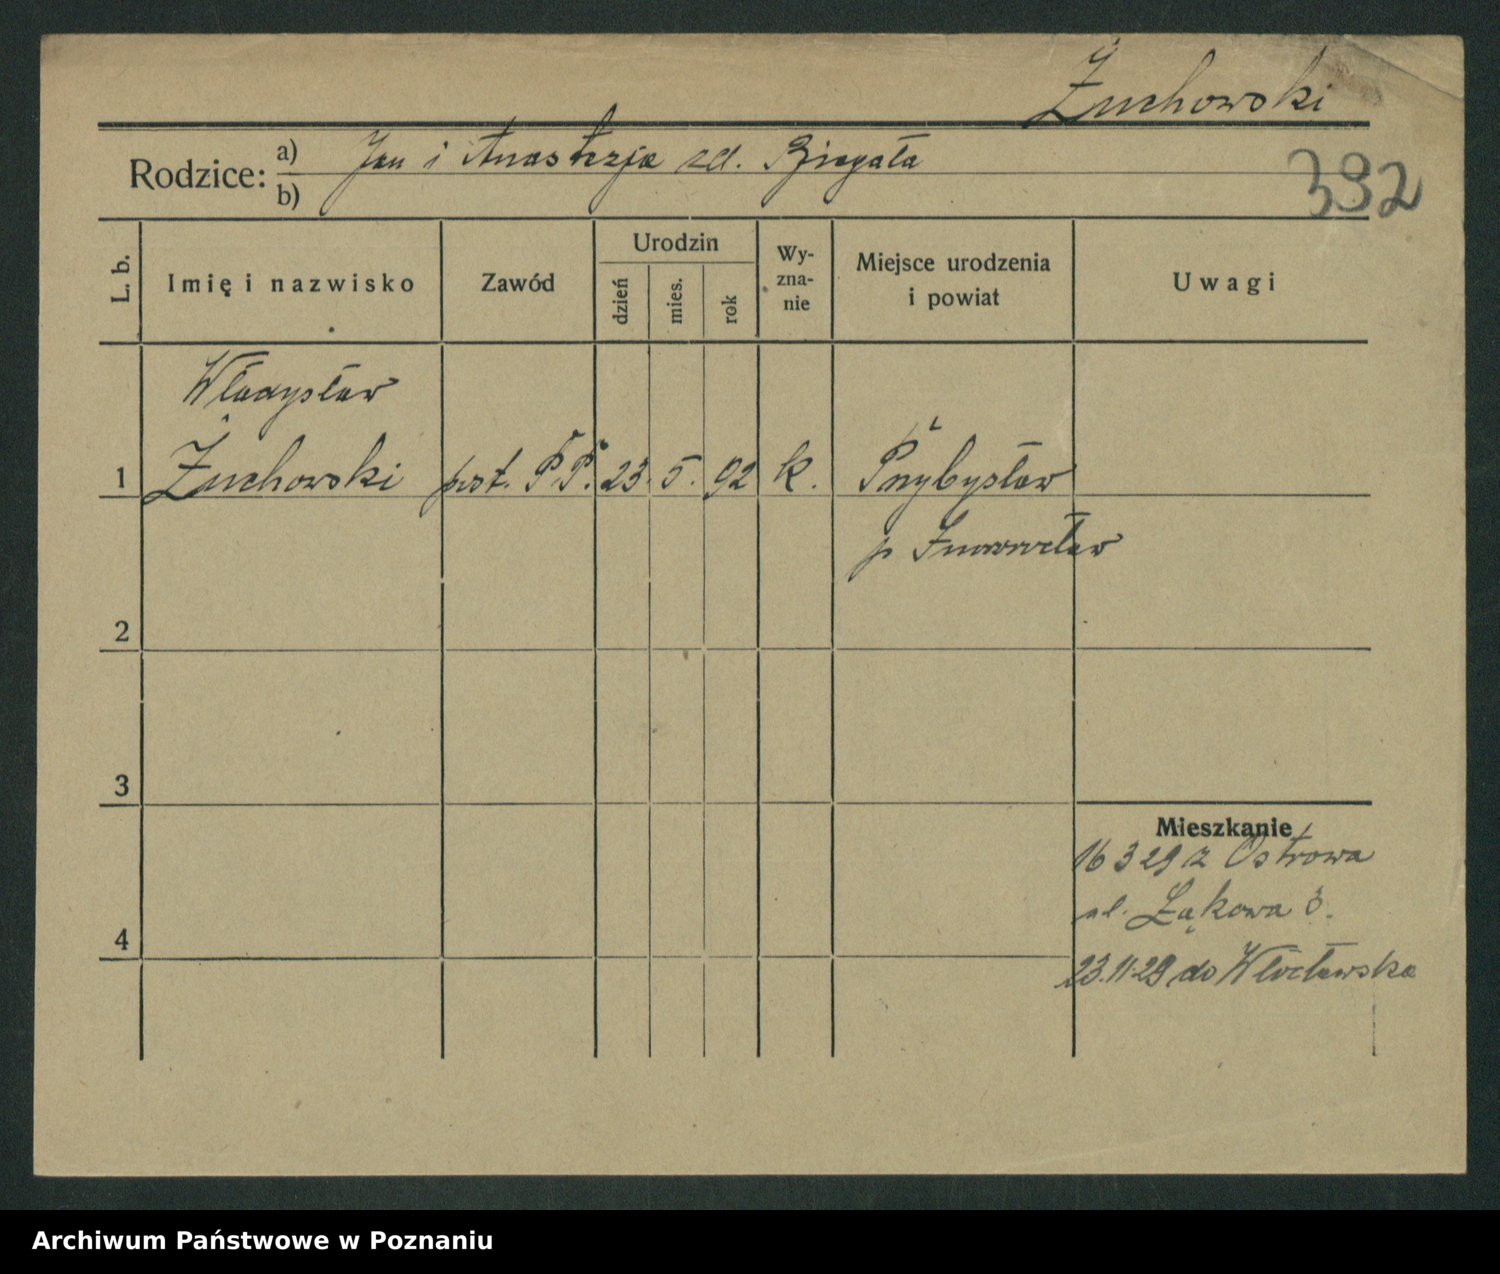 Żuchowski
Rodzice: a) Jan i Anastazja zd. Biegała
b)
392
L. b.
Imię i nazwisko
Zawód
Urodzin
dzień
mies.
rok
Wy-
zna-
nie
Miejsce urodzenia
i powiat
Uwagi
Władysław
1 Żuchowski post. P.P. 23. 5. 92 k. Przybysław
p Inowrocław
2
3
Mieszkanie
16 3 29 z Ostrowa
ul. Łąkowa 3.
4
23.11.29 do Włocławska
Archiwum Państwowe w Poznaniu